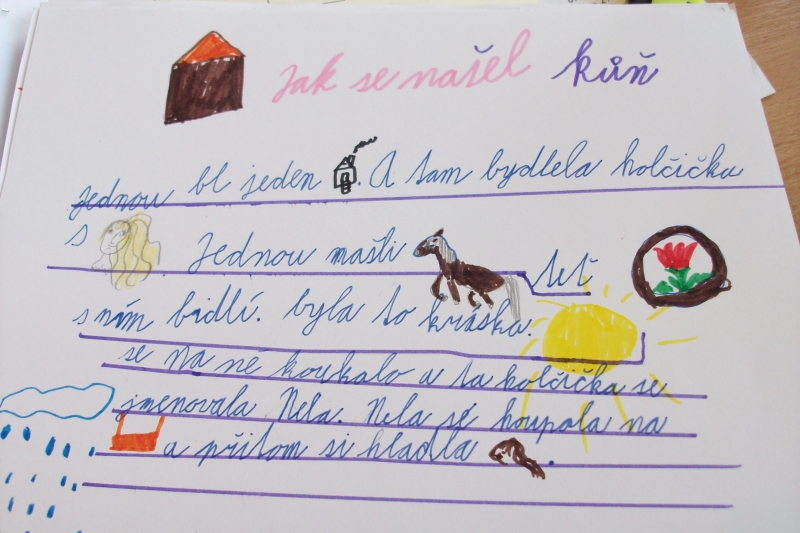 Jak se našel kůň
Jednou bl jeden . A tam bydlela holčička
s . Jednou mašli teť
s ním bidlí. byla to kráska.
se na ně koukalo a ta holčička se
jmenovala Nela. Nela se houpala na
a přitom si hladla .